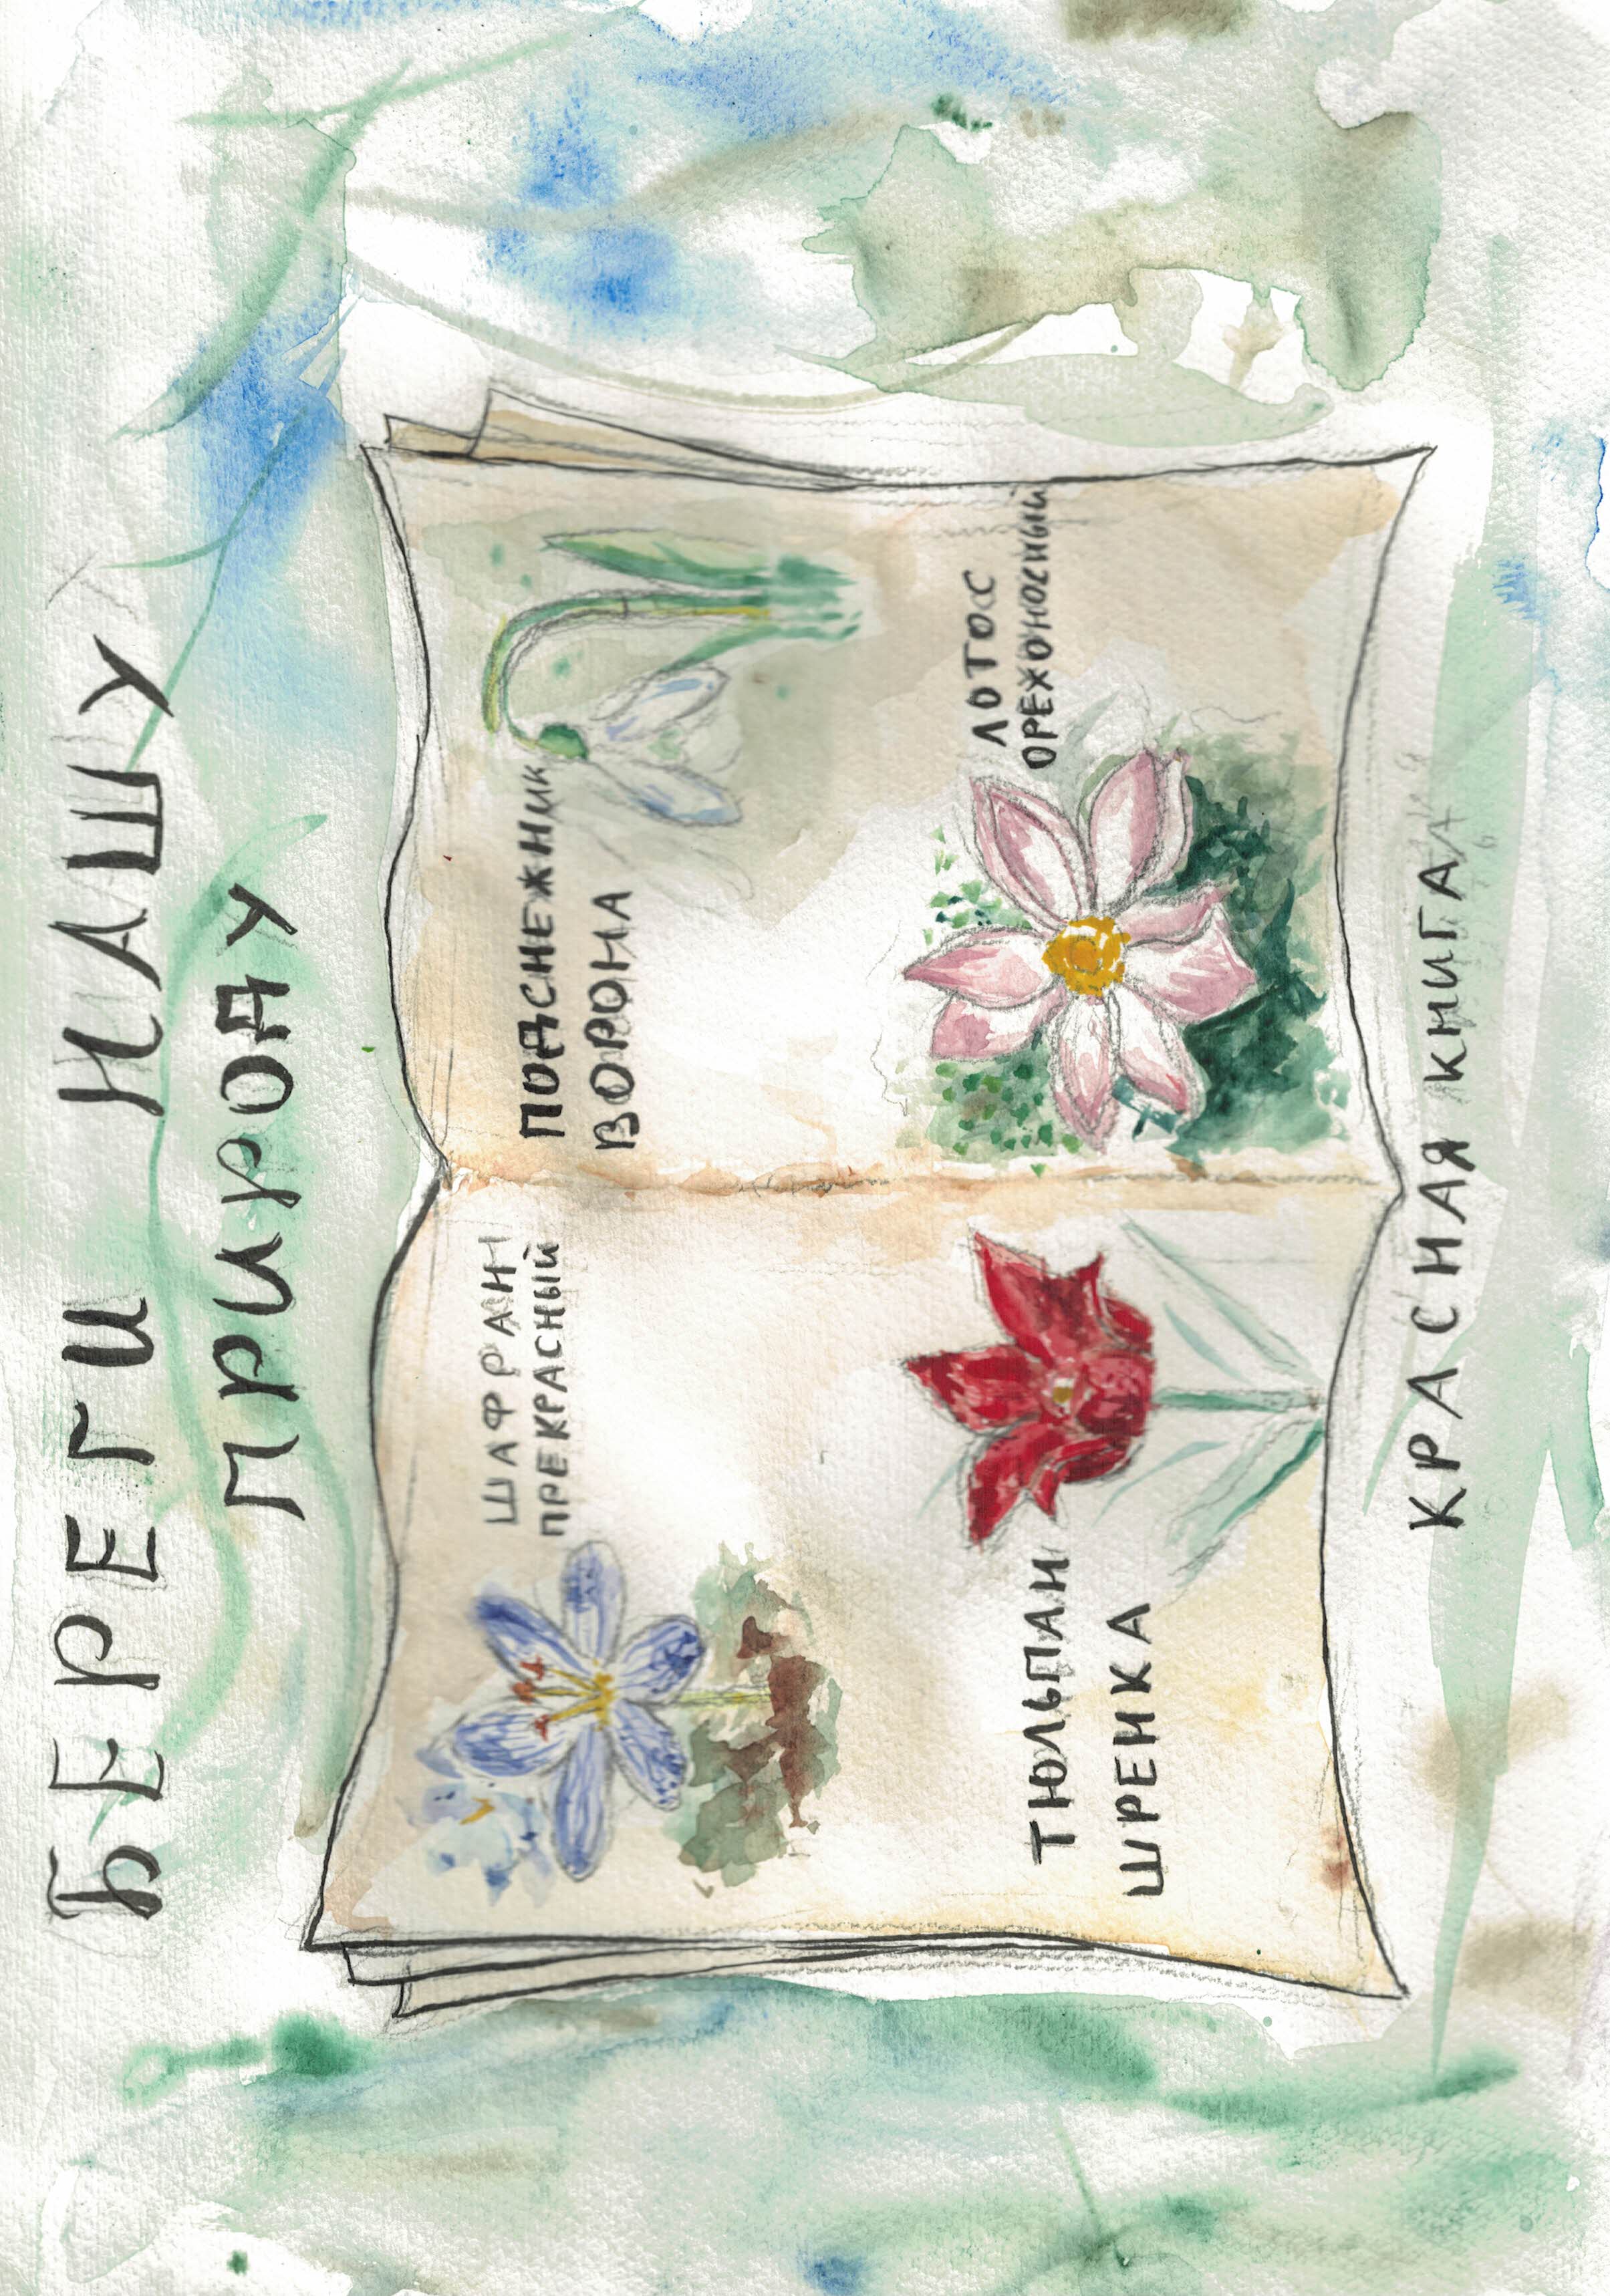 БЕРЕГИ НАШУ
ПРИРОДУ
ШАФРАН
ПРЕКРАСНЫЙ
ТЮЛЬПАН
ШРЕНКА
ПОДСНЕЖНИК
ВОРОНА
ЛОТОС
ОРЕХОНОСНЫЙ
КРАСНАЯ КНИГА